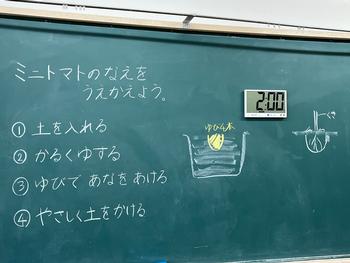 ミニトマトのなえを
うえかえよう。
① 土を入れる
② かるくゆする
③ ゆびで あなをあける
④ やさしく土をかける
ゆび4本
2:00